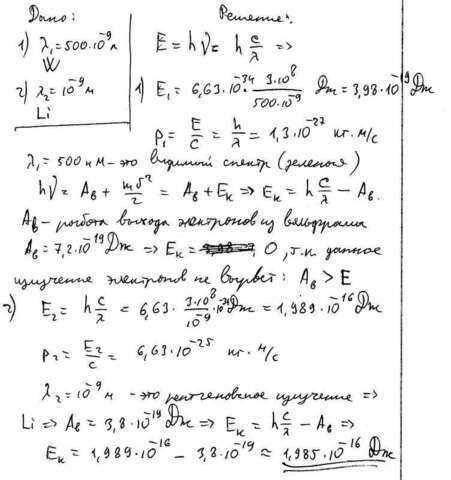 Дано:
1) λ₁=500·10⁻⁹ м
W
2) λ₂=10⁻⁹ м
Li
Решение:
E = hν = h c/λ =>
1) E₁ = 6,63·10⁻³⁴ · 3·10⁸/500·10⁻⁹ Дж = 3,98·10⁻¹⁹ Дж
p₁ = E/c = h/λ = 1,3·10⁻²⁷ кг·м/с
λ₁ = 500 нм – это видимый спектр (зеленая)
hν = Aв + mv²/2 = Aв + Eк => Eк = h c/λ – Aв.
Aв – работа выхода электронов из вольфрама
Aв = 7,2·10⁻¹⁹ Дж => Eк = 0, т.к. данное
излучение электронов не вырвет: Aв > E
2) E₂ = h c/λ = 6,63 · 3·10⁸/10⁻⁹ ·10⁻³⁴ Дж = 1,989·10⁻¹⁶ Дж
p₂ = E₂/c = 6,63·10⁻²⁵ кг·м/с
λ₂ = 10⁻⁹ м – это рентгеновское излучение =>
Li => Aв = 3,8·10⁻¹⁹ Дж => Eк = h c/λ – Aв =>
Eк = 1,989·10⁻¹⁶ – 3,8·10⁻¹⁹ ≈ 1,985·10⁻¹⁶ Дж